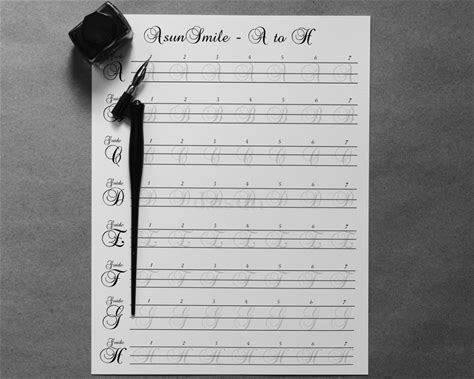 AsunSmile - A to H
2 3 4 5 6 7
A A A A A A A
2 3 4 5 6 7
B B B B B B
Guide 1 2 3 4 5 6 7
C C C C C C C C
Guide 1 2 3 4 5 6 7
D D D D D D D D
Guide 1 2 3 4 5 6 7
E E E E E E E E
Guide 1 2 3 4 5 6 7
F F F F F F F F
Guide 1 2 3 4 5 6 7
G G G G G G G G
Guide 1 2 3 4 5 6 7
H H H H H H H H